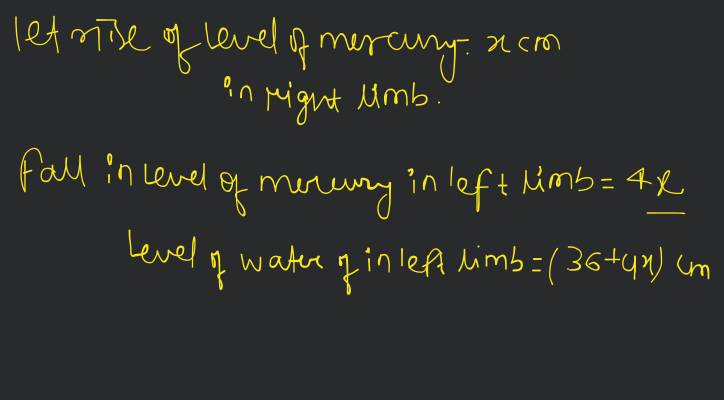 let rise of level of mercury = x cm
in right limb.
fall in level of mercury in left limb = 4x
level of water of in left limb = (36+4x) cm